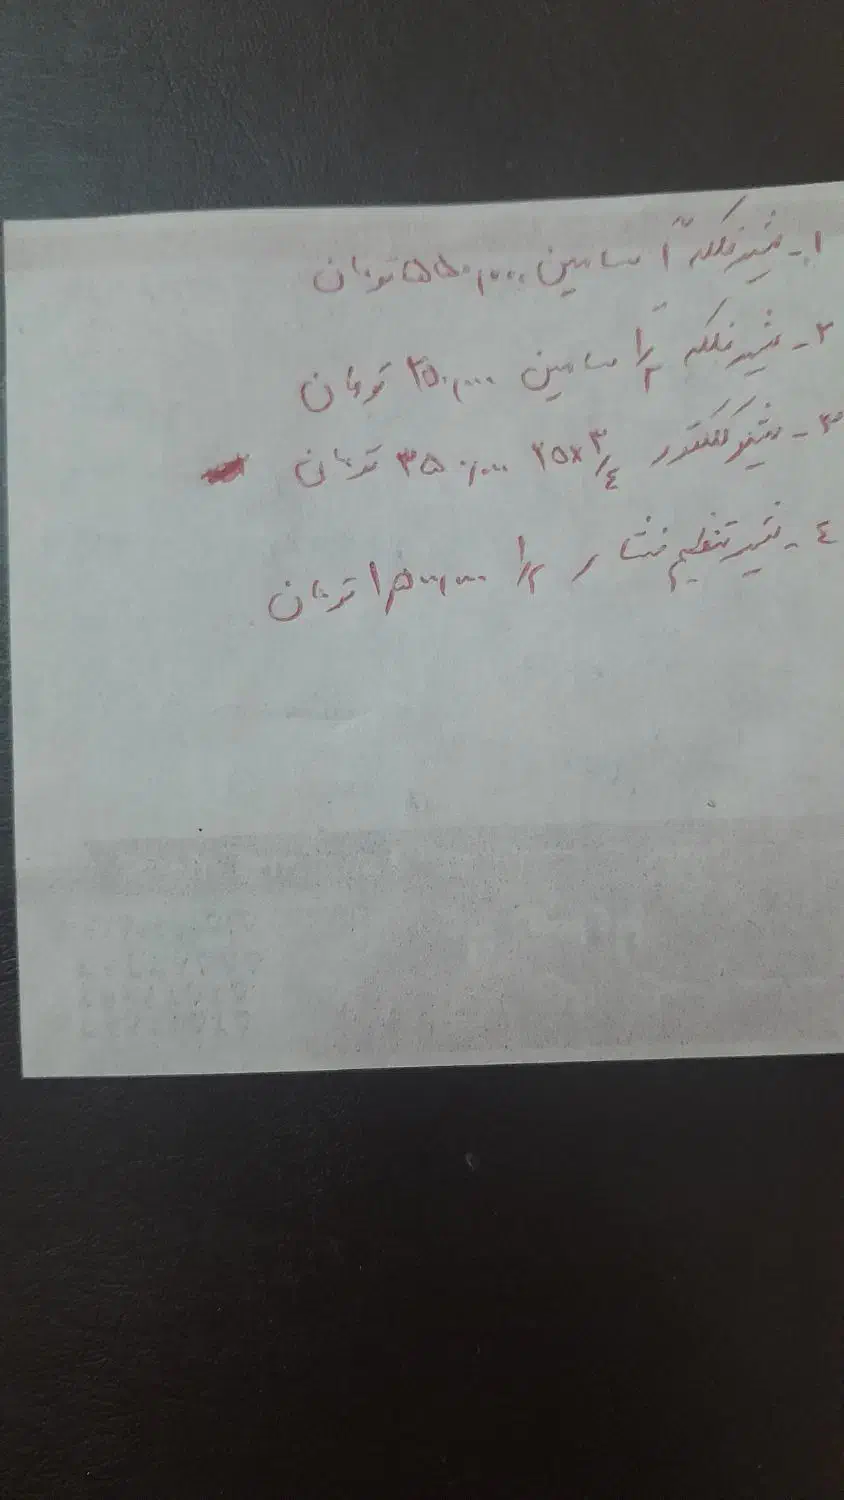 ۱- شیرفلکه ″۱ سامین ۵۵۰,۰۰۰ تومان
۲- شیرفلکه ″۱/۲ سامین ۲۵۰,۰۰۰ تومان
۳- شیر کلکتور ۳/۴×۲۵ ۳۵۰,۰۰۰ تومان
٤- شیر تنظیم فشار ۱/۲ ۱,۵۰۰,۰۰۰ تومان